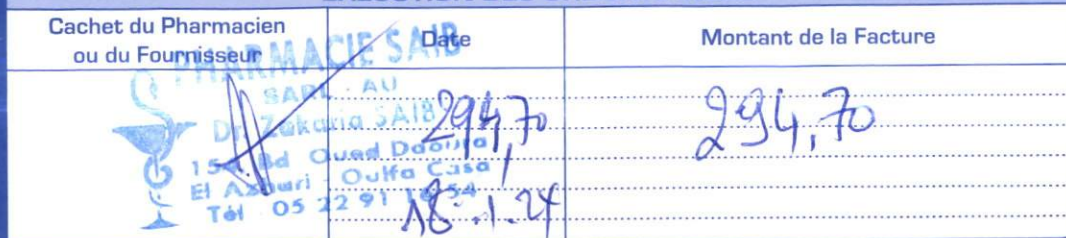 Cachet du Pharmacien
ou du Fournisseur
Date
Montant de la Facture
PHARMACIE SAIB
SARL - AU
Dr. Zakaria SAIB
Bd Oued Daoura
El Azhari - Oulfa Casa
Tél 05 22 91
294,70
18.1.24
294,70